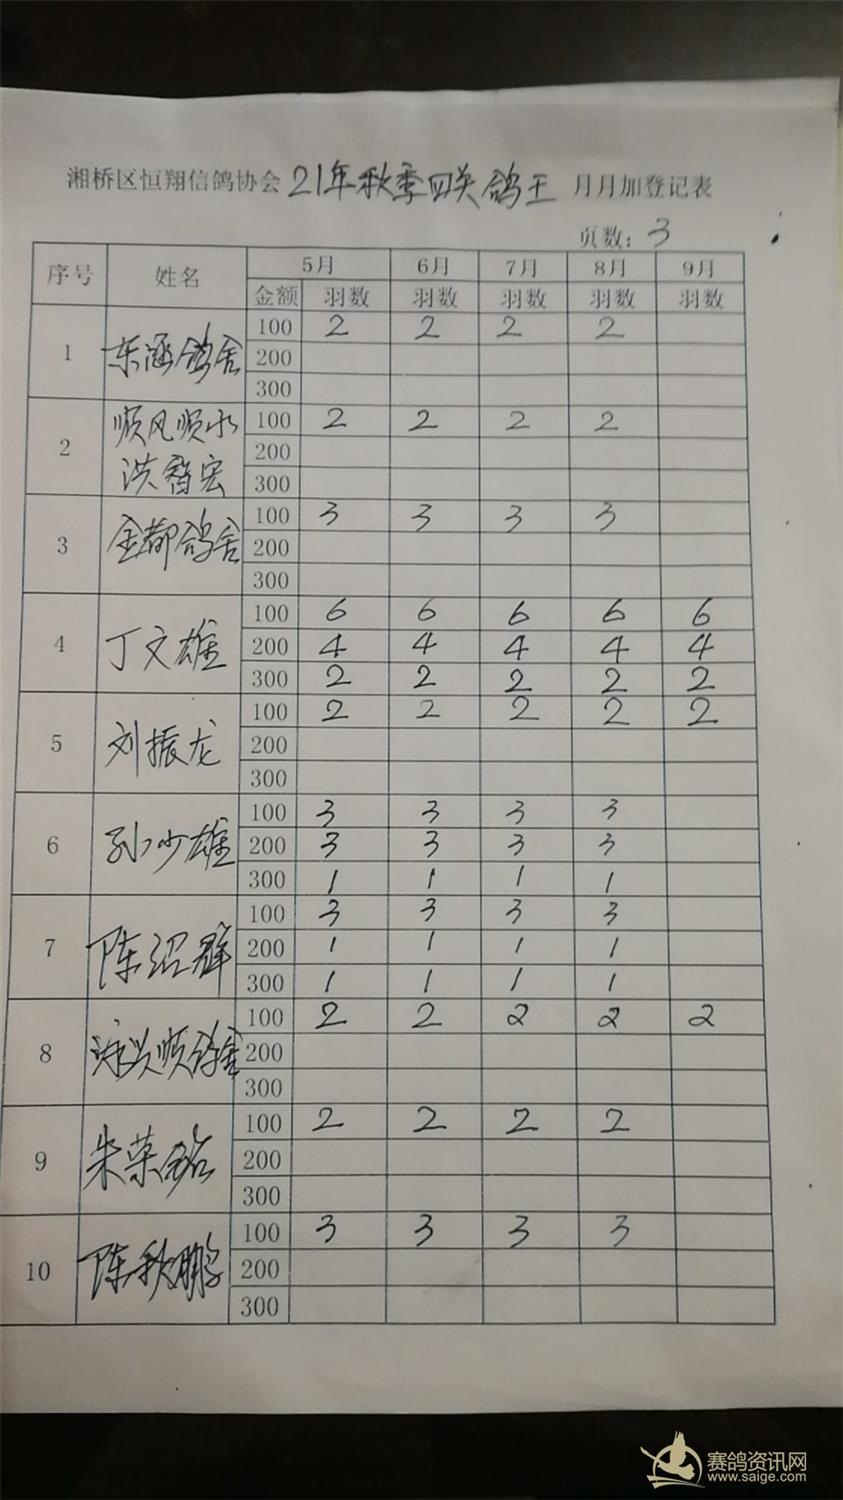 湘桥区恒翔信鸽协会 21年秋季四关鸽王 月月加登记表
页数：3
序号 姓名 5月 6月 7月 8月 9月
金额 羽数 羽数 羽数 羽数 羽数
1 东涵鸽舍 100 2 2 2 2
200
300
2 顺风顺水 100 2 2 2 2
洪智宏 200
300
3 金都鸽舍 100 3 3 3 3
200
300
4 丁文雄 100 6 6 6 6 6
200 4 4 4 4 4
300 2 2 2 2 2
5 刘振龙 100 2 2 2 2 2
200
300
6 孙少雄 100 3 3 3 3
200 3 3 3 3
300 1 1 1 1
7 陈绍群 100 3 3 3 3
200 1 1 1 1
300 1 1 1 1
8 兴顺鸽舍 100 2 2 2 2 2
200
300
9 朱荣 100 2 2 2 2
200
300
10 陈秋鹏 100 3 3 3 3
200
300
赛鸽资讯网
www.saige.com